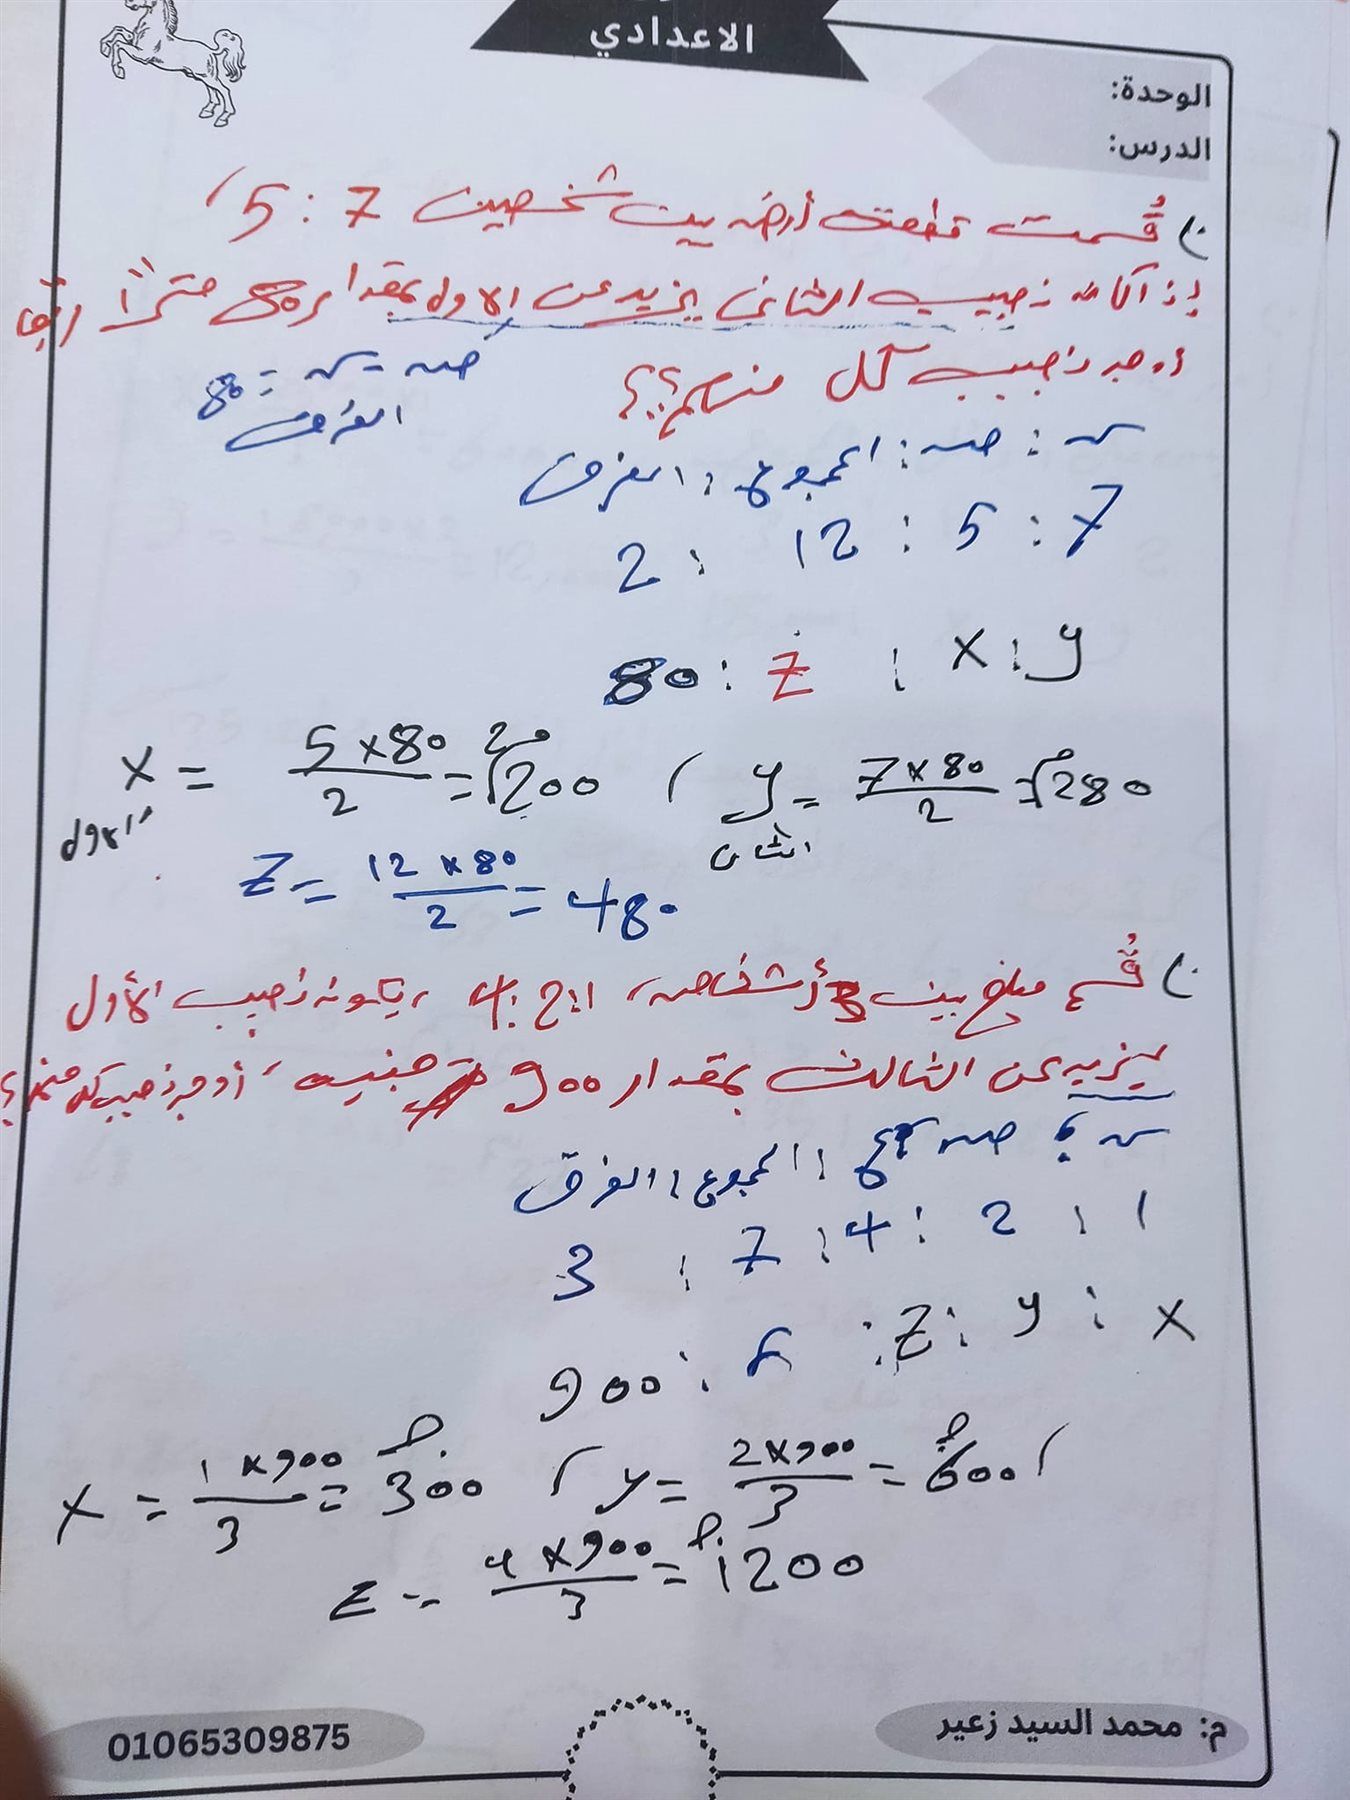 الاعدادي
الوحدة:
الدرس:
قُسمت قطعة أرض بين شخصين 7 : 5 ،
إذا كان نصيب الثاني يزيد عن الاول بمقدار 80 مترًا
أوجد نصيب كل منهم؟؟
ص - س = 80
الفرق
س : ص : المجموع : الفرق
7 : 5 : 12 : 2
y : x : z : 80
x = 5 x 80 / 2 = 200 ، y = 7 x 80 / 2 = 280
الاول
الثاني
z = 12 x 80 / 2 = 480
قُسم مبلغ بين 3 أشخاص، 1 : 2 : 4 ، نصيب الأول
يزيد عن الثالث بمقدار 900 جنيه ، أوجد نصيب كل منهم؟
س : ص : ع : المجموع : الفرق
1 : 2 : 4 : 7 : 3
x : y : z : : 900
x = 1 x 900 / 3 = 300 ، y = 2 x 900 / 3 = 600 ،
z = 4 x 900 / 3 = 1200
م: محمد السيد زعير
01065309875